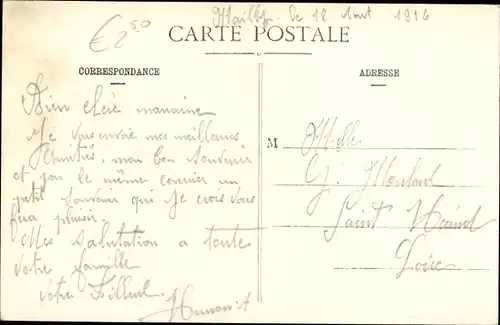 €2 50
Mailly le 18 Aout 1916
CARTE POSTALE
CORRESPONDANCE
ADRESSE
Bien chère marraine
Je vous envoie mes meilleures
amitiés, mon bon souvenir
et par le même courrier un
petit souvenir qui je crois vous
fera plaisir.
Mes salutation a toute
votre famille
votre Filleul
M Melle
G. Moulard
Saint Héand
Loire